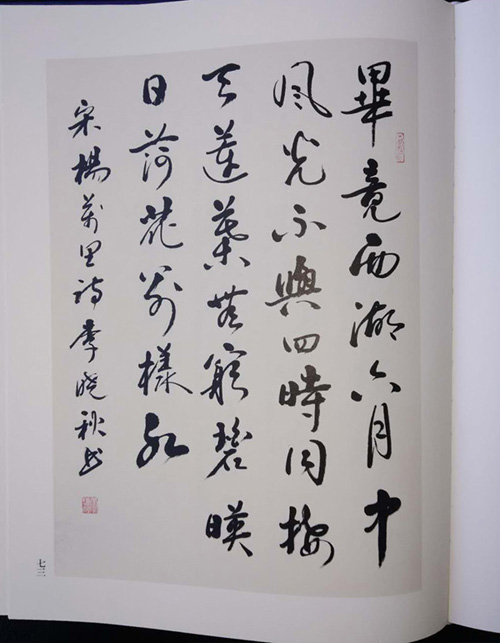 畢竟西湖六月中
風光不與四時同接
天蓮葉無窮碧暎
日荷花別樣紅
宋楊萬里詩李晓秋书
七三